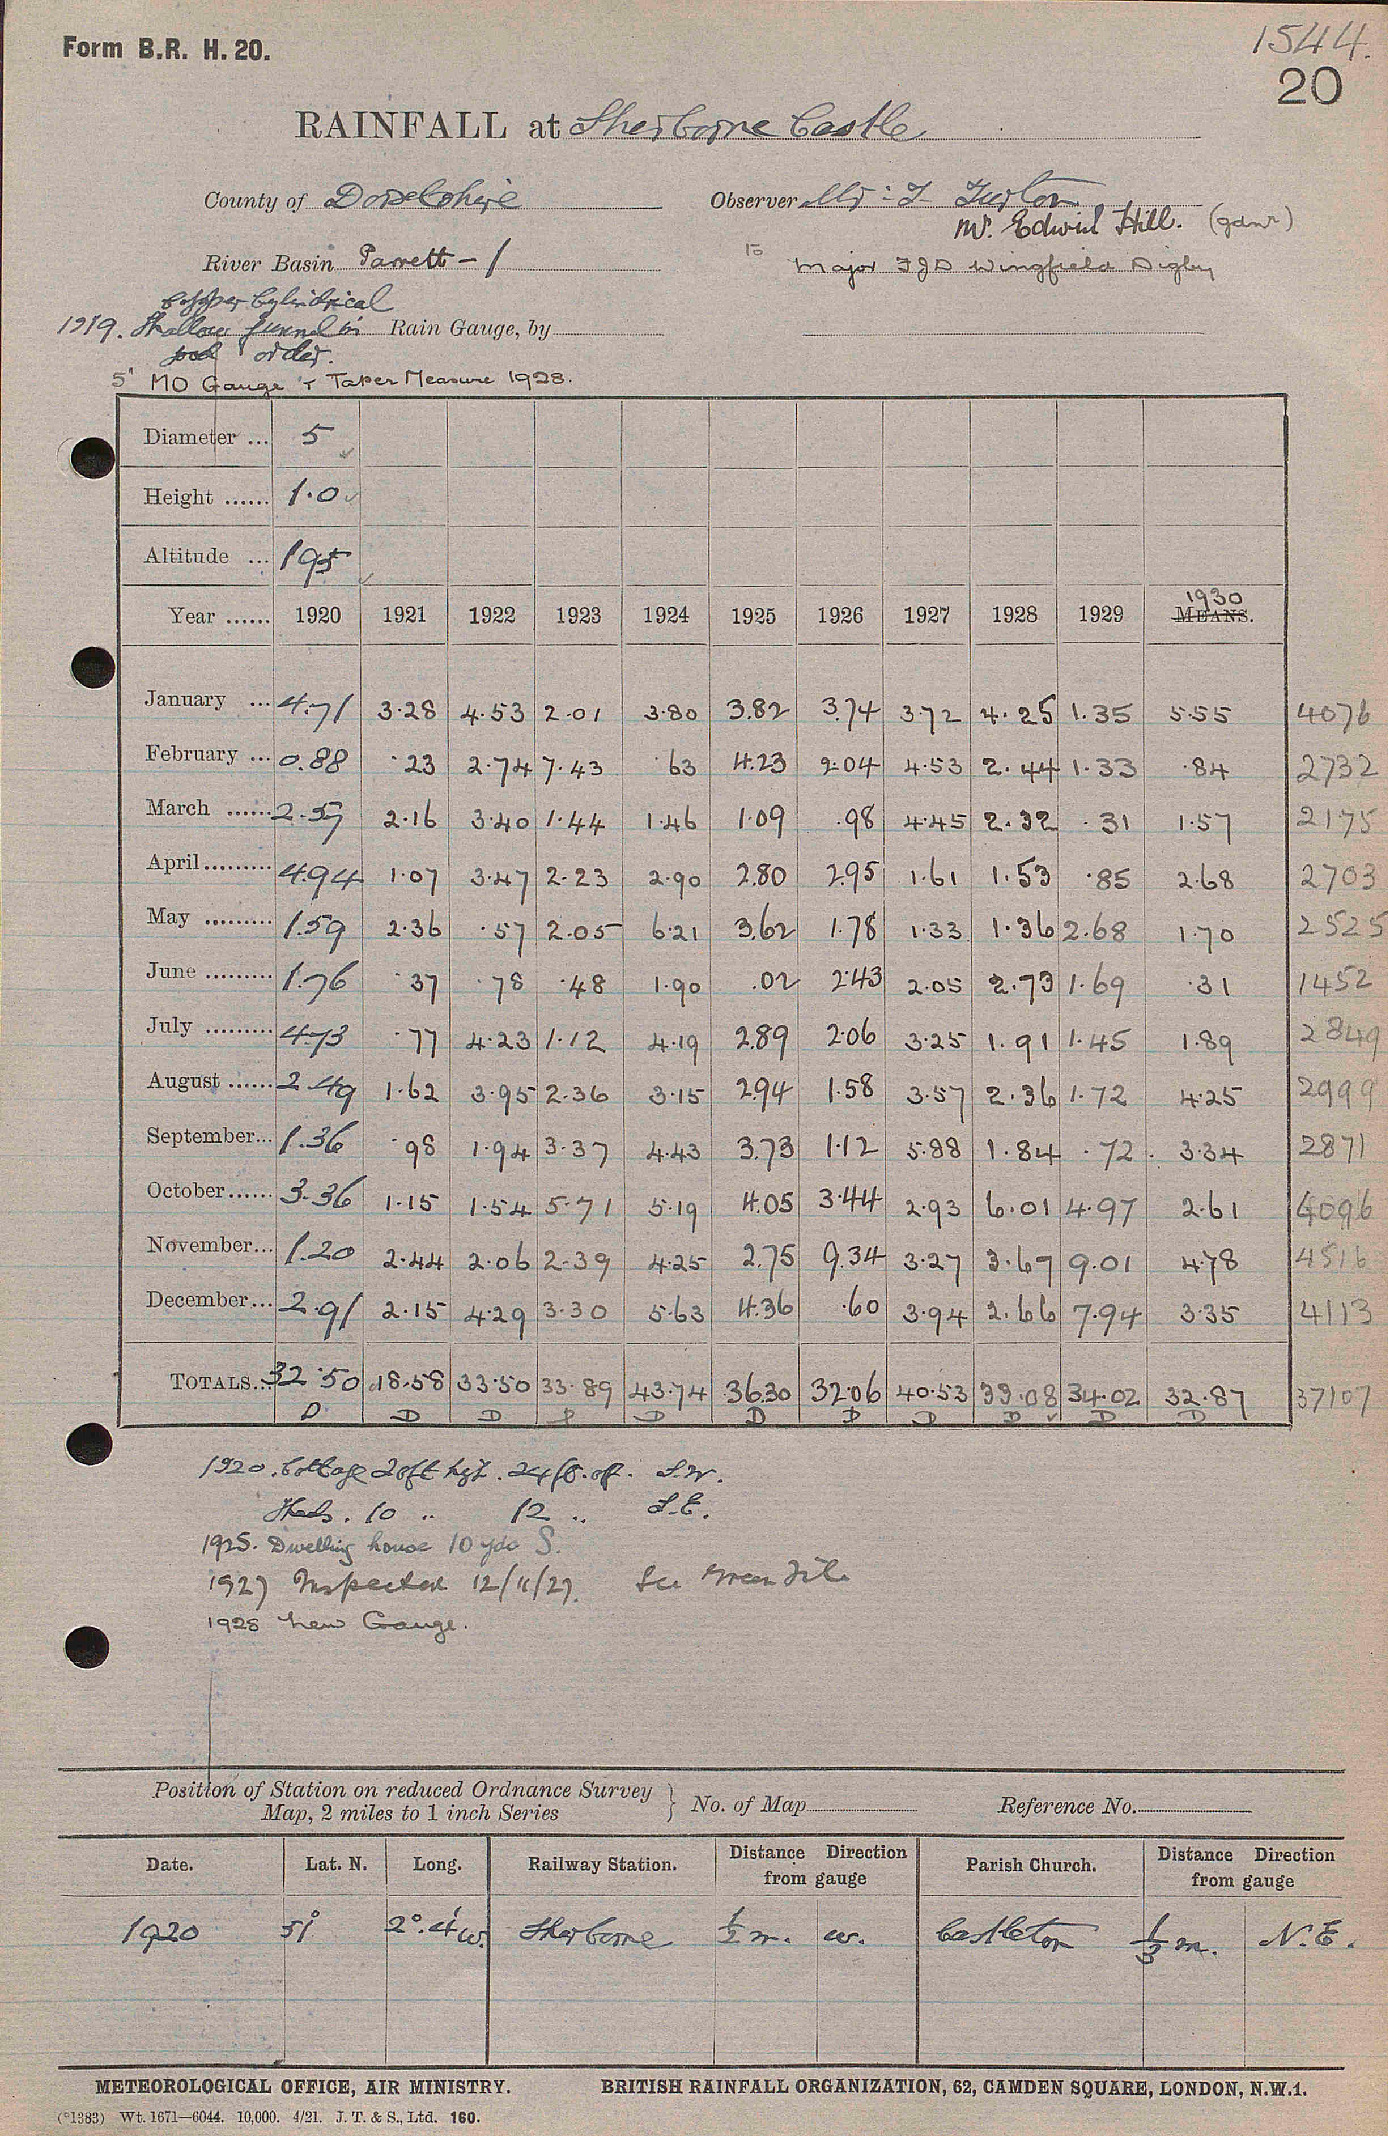 Form B.R. H. 20.
1544.
20
RAINFALL at Sherborne Castle
County of Dorsetshire Observer Mr: T Turton
Mr. Edwin Hill. (gdnr)
River Basin Parrett - 1 to Major F J B Wingfield Digby
Copper Cylindrical
1919. Shallow funnel in Rain Gauge, by
good order.
5" MO Gauge & Taper Measure 1928.
Diameter ... 5
Height ...... 1.0
Altitude ... 195
Year ...... 1920 1921 1922 1923 1924 1925 1926 1927 1928 1929 1930 MEANS.
January ... 4.71 3.28 4.53 2.01 3.80 3.82 3.74 3.72 4.25 1.35 5.55 4076
February ... 0.88 .23 2.74 7.43 .63 4.23 2.04 4.53 2.44 1.33 .84 2732
March ...... 2.57 2.16 3.40 1.44 1.46 1.09 .98 4.45 2.32 .31 1.57 2175
April ......... 4.94 1.07 3.47 2.23 2.90 2.80 2.95 1.61 1.53 .85 2.68 2703
May ......... 1.59 2.36 .57 2.05 6.21 3.62 1.78 1.33 1.36 2.68 1.70 2525
June ......... 1.76 .37 .78 .48 1.90 .02 2.43 2.05 2.73 1.69 .31 1452
July ......... 4.73 .77 4.23 1.12 4.19 2.89 2.06 3.25 1.91 1.45 1.89 2849
August ...... 2.49 1.62 3.95 2.36 3.15 2.94 1.58 3.57 2.36 1.72 4.25 2999
September... 1.36 .98 1.94 3.37 4.43 3.73 1.12 5.88 1.84 .72 3.34 2871
October...... 3.36 1.15 1.54 5.71 5.19 4.05 3.44 2.93 6.01 4.97 2.61 4096
November... 1.20 2.44 2.06 2.39 4.25 2.75 9.34 3.27 3.67 9.01 4.78 4516
December... 2.91 2.15 4.29 3.30 5.63 4.36 .60 3.94 2.66 7.94 3.35 4113
TOTALS... 32.50 18.58 33.50 33.89 43.74 36.30 32.06 40.53 33.08 34.02 32.87 37107
D D D D D D D D D D D
1920. Cottage 20ft hgt. 24 ft. off. S.W.
Sheds. 10 " 12 " S.E.
1925. Dwelling house 10 yds S.
1927 Inspected 12/11/27. See Green File
1928 New Gauge.
Position of Station on reduced Ordnance Survey
Map, 2 miles to 1 inch Series } No. of Map Reference No.
Date. Lat. N. Long. Railway Station. Distance Direction from gauge Parish Church. Distance Direction from gauge
1920 51° 2°.4' w. Sherborne 1/2 m. w. Castleton 1/3 m. N.E.
METEOROLOGICAL OFFICE, AIR MINISTRY. BRITISH RAINFALL ORGANIZATION, 62, CAMDEN SQUARE, LONDON, N.W.1.
(*1383) Wt. 1671—6044. 10,000. 4/21. J. T. & S., Ltd. 160.